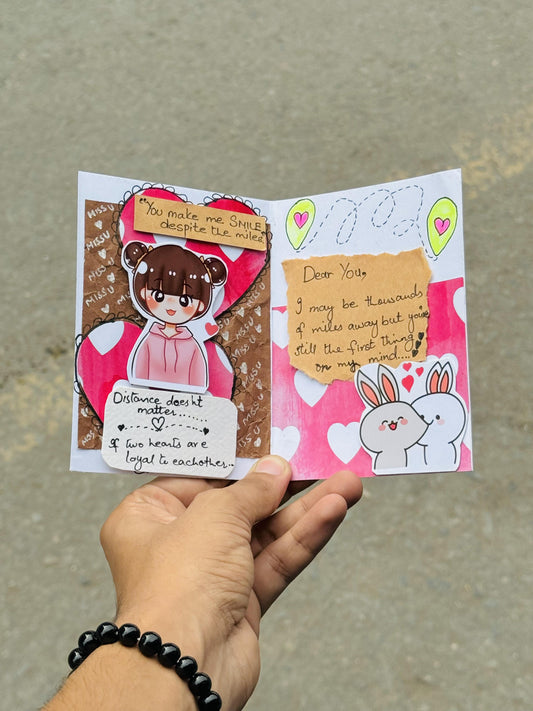 "You make me SMILE
despite the miles"
MISS U
MISS U
MISS U
MISS U
MISS U
MISS U
MISS U
MISS U
MISS U
Distance doesn't
matter........
If two hearts are
loyal to eachother...
Dear You,
I may be thousands
of miles away but you're
still the first thing
on my mind....